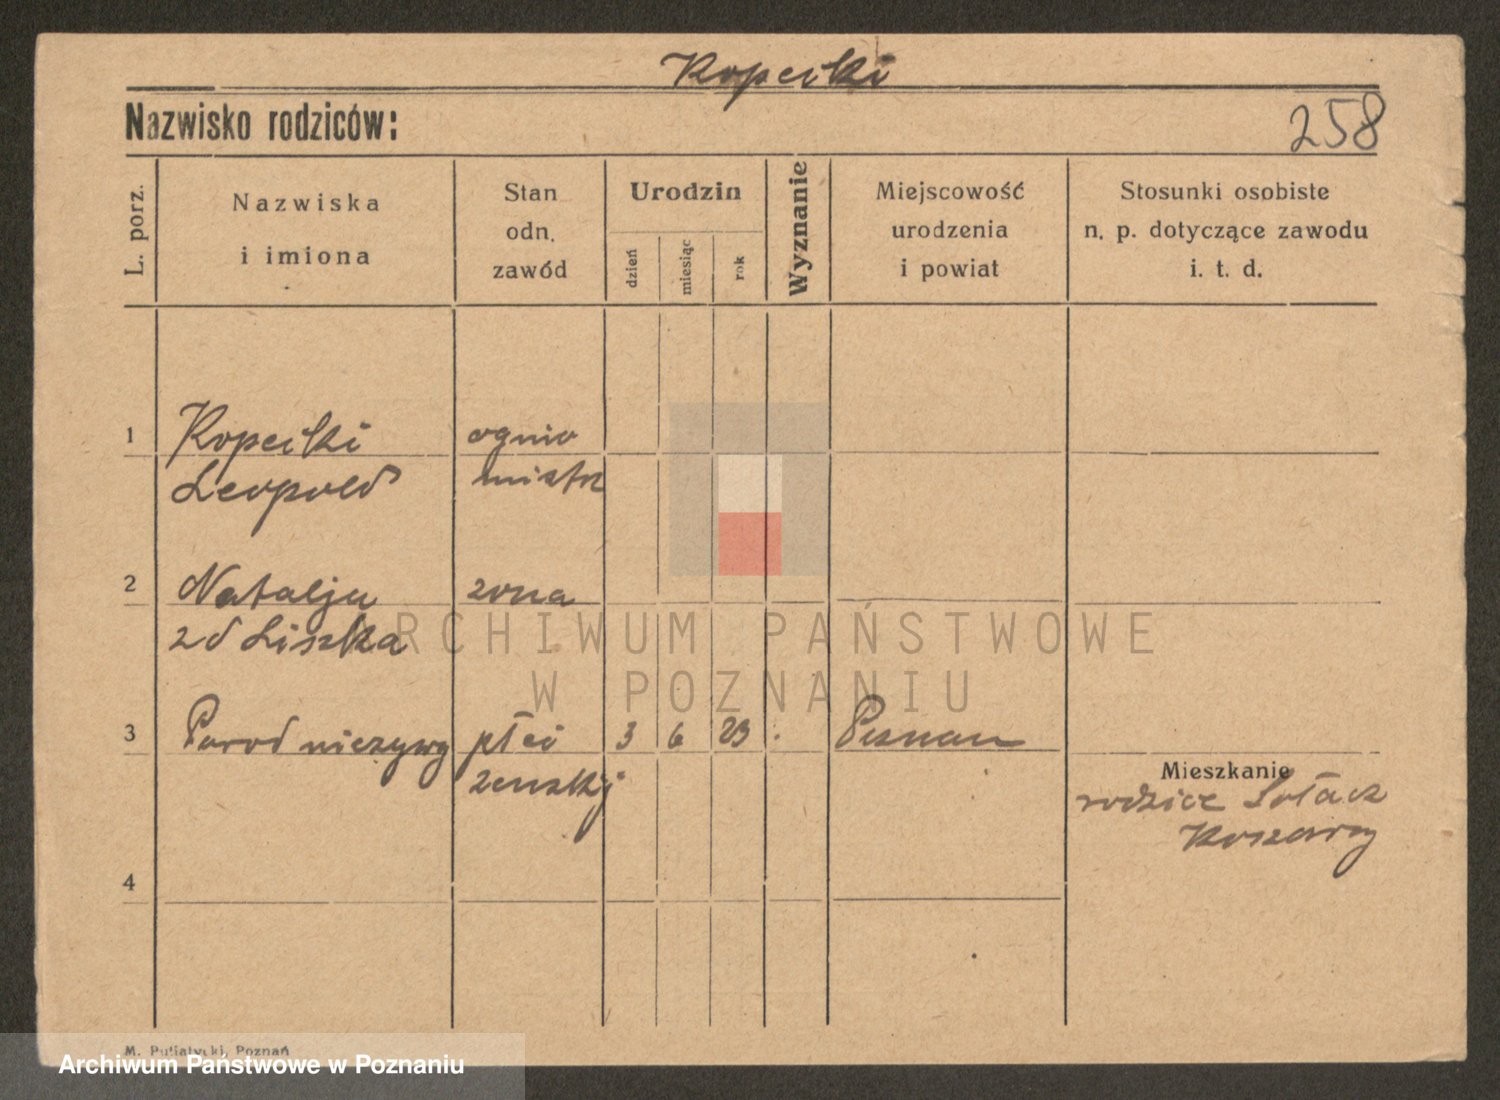 Kopecki
Nazwisko rodziców:
258
L. porz.
Nazwiska
i imiona
Stan
odn.
zawód
Urodzin
dzień
miesiąc
rok
Wyznanie
Miejscowość
urodzenia
i powiat
Stosunki osobiste
n. p. dotyczące zawodu
i. t. d.
1
Kopecki
Leopold
ognio
mistrz
2
Natalja
zd Liszka
zona
3
Porod niezywy
płci
zenskij
3
6
23
Poznan
Mieszkanie
rodzice Sołacz
Koszary
4
ARCHIWUM PAŃSTWOWE
W POZNANIU
M. Putiatycki, Poznań
Archiwum Państwowe w Poznaniu